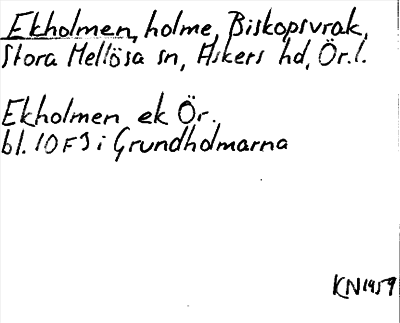 Ekholmen, holme, Biskopsvrak,
Stora Mellösa sn, Askers hd, Ör.l.
Ekholmen ek Ör.
bl. 10F9 i Grundholmarna
KN1959